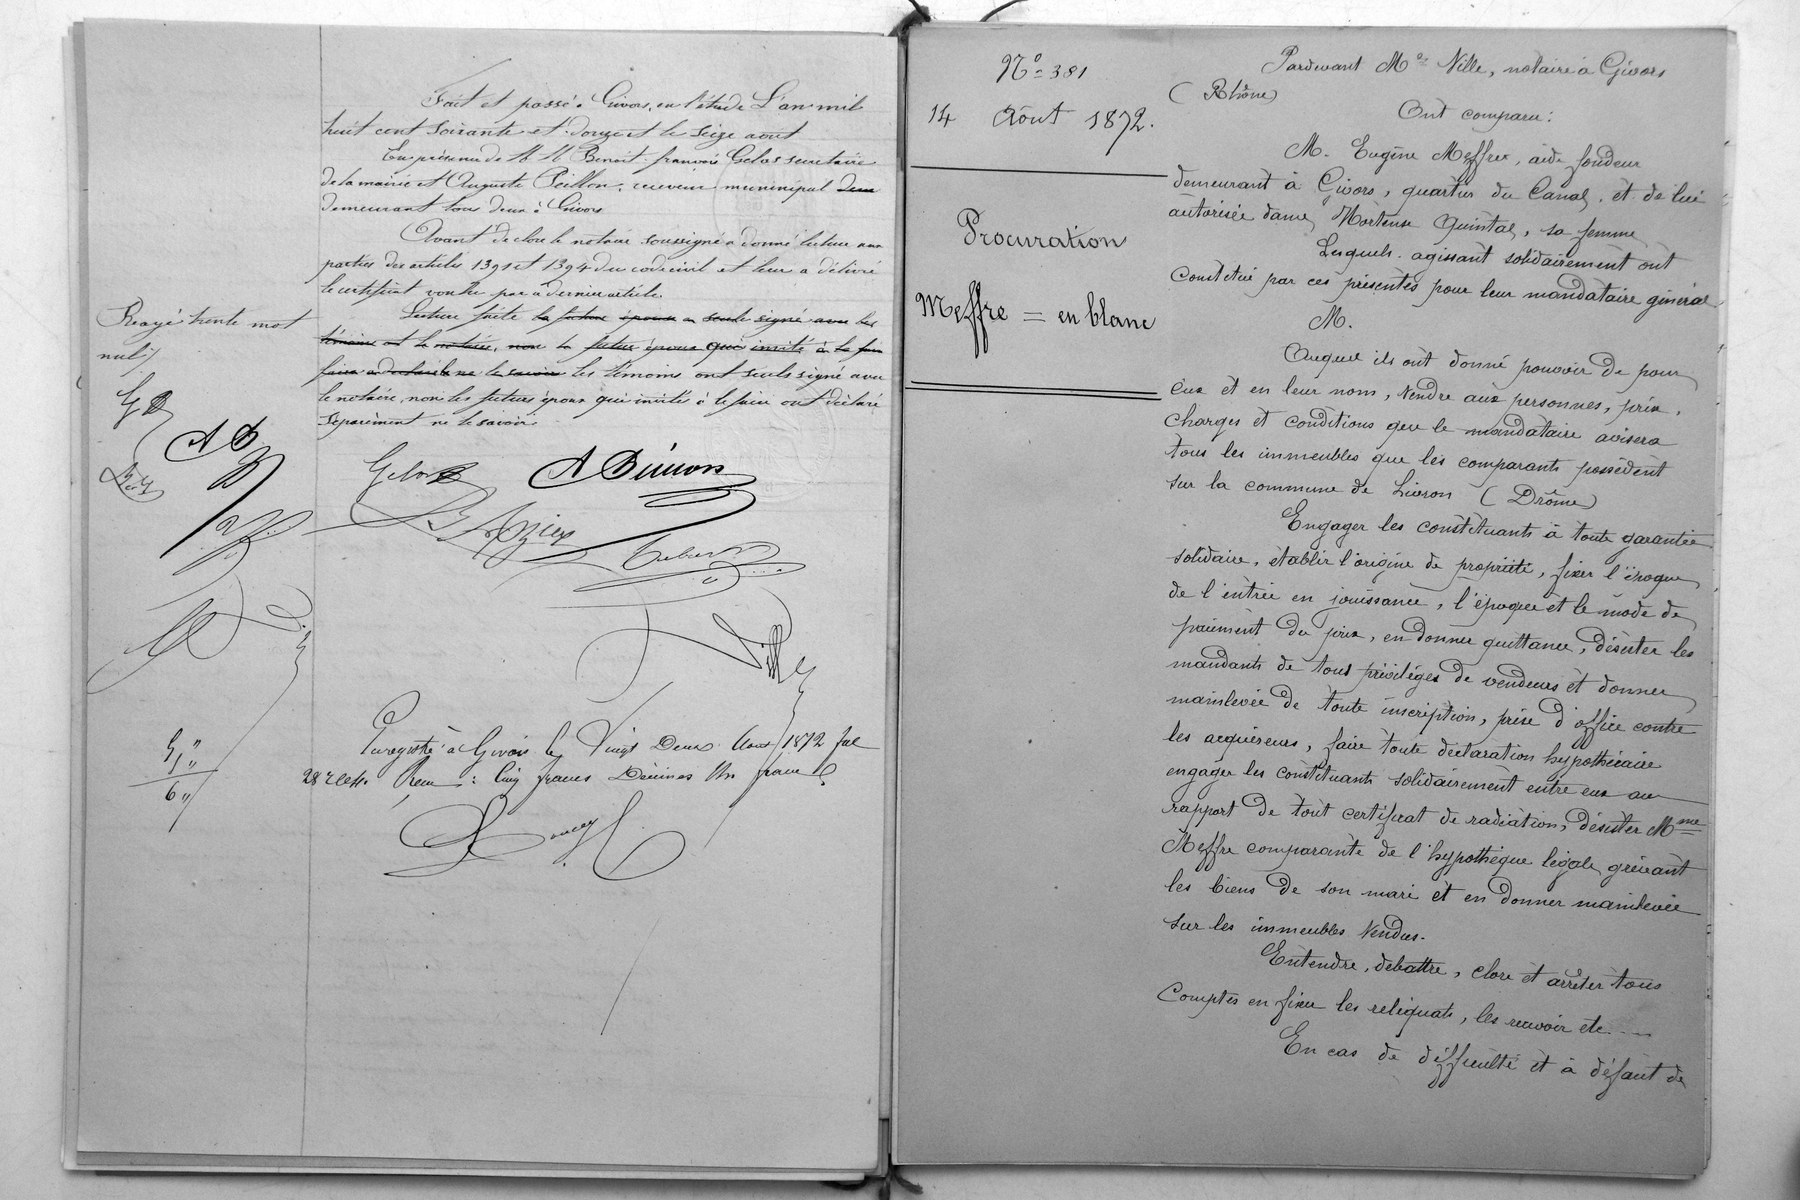 Fait et passé à Givors, en l'étude L'an mil
huit cent soixante et douze et le seize aout
En présence de M M Benoit françois Gelas secrétaire
de la mairie et Auguste Peillon, receveur municipal deux
demeurant tous deux à Givors
Avant de clore le notaire soussigné a donné lecture aux
parties des articles 1391 et 1394 du code civil et leur a délivré
le certificat voulu par ce dernier article.
Lecture faite la future épouse a seule signé avec les
témoins et le notaire, non le futur époux qui invité à le faire
faire a déclaré ne le savoir les témoins ont seuls signé avec
le notaire, non les futurs époux qui invités à le faire ont déclaré
séparément ne le savoir
Rayé trente mot
nul
G B
A B
Gelas
A Binion
Ville
Enregistré à Givors le Vingt Deux Aout 1872 fol
28 R C 4. Reçu : Cinq francs Décimes Un franc
5 "
1 "
6 "
No 381
14 Août 1872.
Procuration
Meffre = en blanc
Pardevant Me Ville, notaire à Givors
(Rhône)
Ont comparu :
M. Eugène Meffre, aide fondeur
demeurant à Givors, quartier du Canal, et de lui
autorisée dame Hortense Quintal, sa femme
Lesquels agissant solidairement ont
constitué par ces présentes pour leur mandataire général
M.
Auquel ils ont donné pouvoir de pour
eux et en leur nom, vendre aux personnes, prix,
charges et conditions que le mandataire avisera
tous les immeubles que les comparants possèdent
sur la commune de Livron (Drôme)
Engager les constituants à toute garantie
solidaire, établir l'origine de propriété, fixer l'époque
de l'entrée en jouissance, l'époque et le mode de
paiement du prix, en donner quittance, désister les
mandants de tous privilèges de vendeurs et donner
mainlevée de toute inscription, prise d'office contre
les acquéreurs, faire toute déclaration hypothécaire
engager les constituants solidairement entre eux au
rapport de tout certificat de radiation, désister Mme
Meffre comparante de l'hypothèque légale grévant
les biens de son mari et en donner mainlevée
sur les immeubles vendus.
Entendre, débattre, clore et arrêter tous
comptes en fixer les reliquats, les recevoir etc
En cas de difficulté et à défaut de